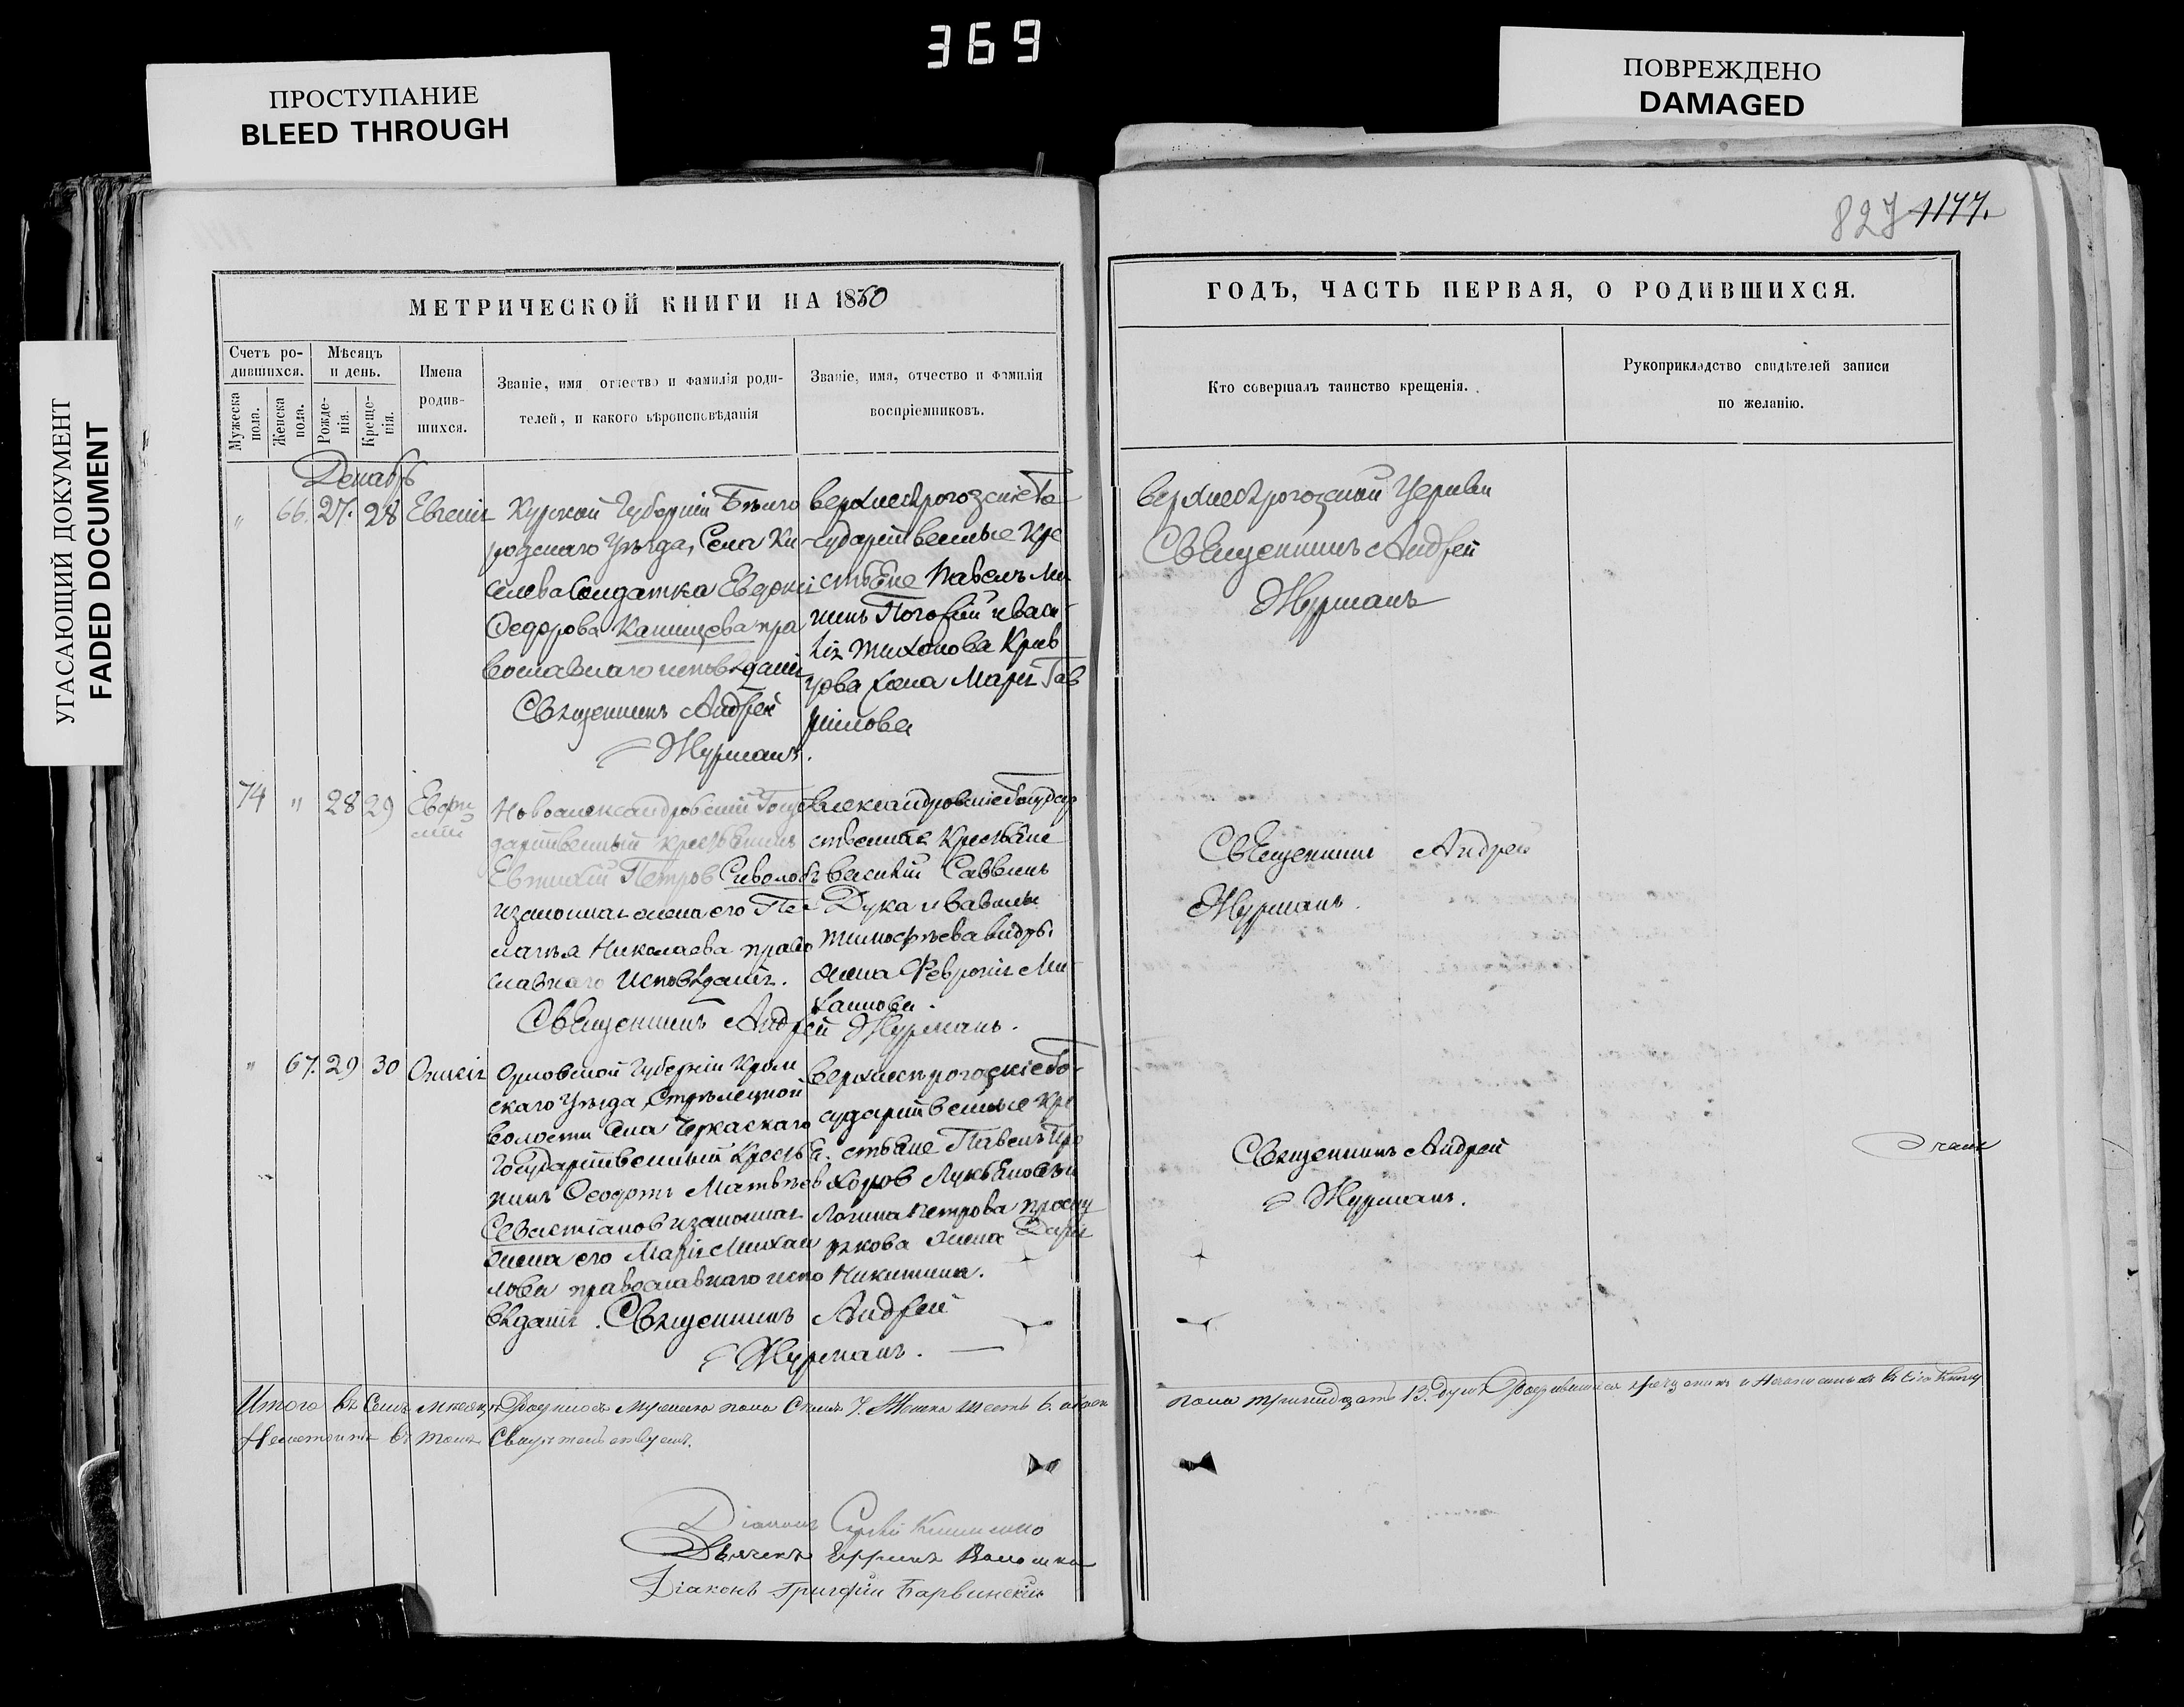 369
ПРОСТУПАНИЕ
BLEED THROUGH
ПОВРЕЖДЕНО
DAMAGED
УГАСАЮЩИЙ ДОКУМЕНТ
FADED DOCUMENT
827 1177.
МЕТРИЧЕСКОЙ КНИГИ НА 1850
Счетъ ро-
дившихся.
Мужеска
пола.
Женска
пола.
Мѣсяцъ
и день.
Рожде-
нія.
Креще-
нія.
Имена
родив-
шихся.
Званіе, имя отчество и фамилія роди-
телей, и какого вѣроисповѣданія
Званіе, имя, отчество и фамилія
воспріемниковъ.
ГОДЪ, ЧАСТЬ ПЕРВАЯ, О РОДИВШИХСЯ.
Кто совершалъ таинство крещенія.
Рукоприкладство свидѣтелей записи
по желанію.
Декабрь
" 66. 27. 28 Евгенія
Курской Губерніи Бѣлго
родскаго Уѣзда, Села Ки
селева Солдатка
Федорова Канищева пра
вославнаго исповѣданія
Священникъ Андрей
Журманъ.
Верхнерогозскіе Го
сударственные Кре
стьяне Павелъ Ми
нинъ Погофій и Васи
лія Тихонова Крав
цова жена Марія Гав
рилова
Верхнерогозской Церкви
Священникъ Андрей
Журманъ
74 " 28 29
Новоалександровскій Госу
дарственный крестьянинъ
Евтихій Петровъ Сиволобъ
и законная жена его Пе
лагія Николаева право
славнаго Исповѣданія.
Священникъ Андрей Журманъ.
Александровскіе Государ
ственные Крестьяне
Василій Саввинъ
Дука и Вавилы
Тимофѣева
жена Февронія Ми
хаилова.
Священникъ Андрей
Журманъ.
" 67. 29 30 Онисія
Орловской Губерніи Кром
скаго Уѣзда Стрѣлецкой
волости Села Черкаскаго
Государственный Крестья
нинъ Феодотъ Матвѣевъ
Севастіановъ и законная
жена его Марія Михаи
лова православнаго испо
вѣданія. Священникъ Андрей
Журманъ.
Верхнерогозскіе Го
сударственные Кре
стьяне Павелъ Про
хоровъ Лукьяновъ и
Логина Петрова
жена Дарія
Никитина.
Священникъ Андрей
Журманъ.
Итого въ Семъ мѣсяцѣ Родилось Мужеска пола Семь 7. Женска шесть 6. обоего
пола тринадцать 13. душъ
въ томъ Свидѣтельствуемъ.
Діаконъ
Дьячекъ
Діаконъ Григорій Барвинскій